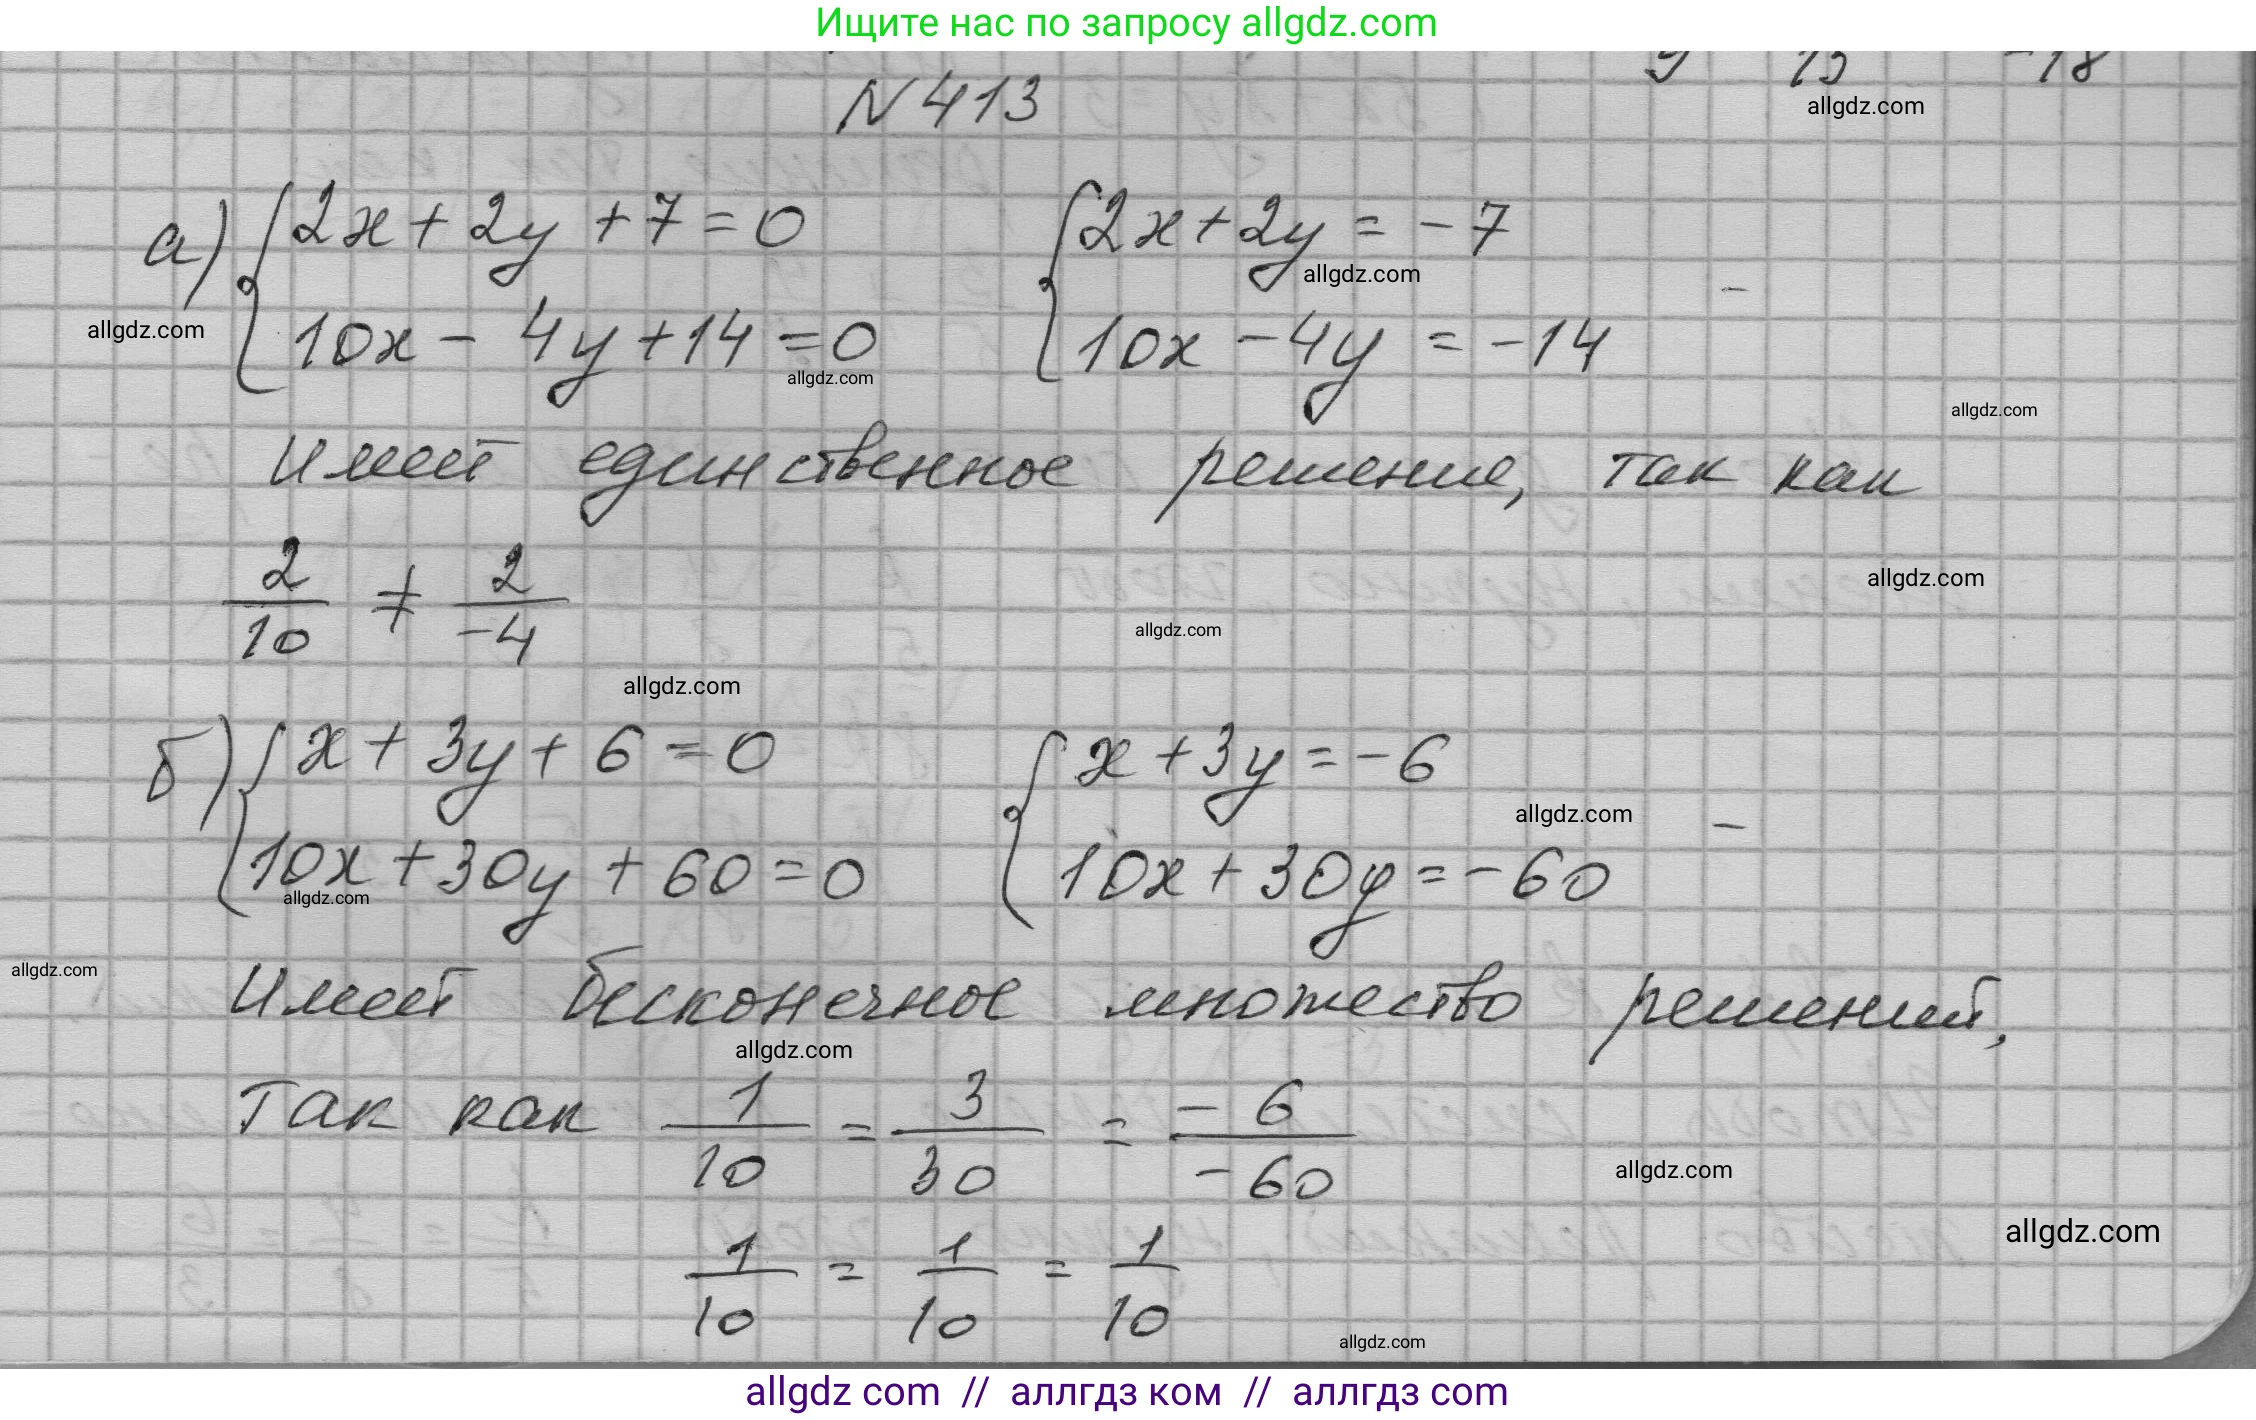 Ищите нас по запросу allgdz.com
9 13 -18
allgdz.com
N 413
а) { 2x + 2y + 7 = 0 { 2x + 2y = -7
allgdz.com
allgdz.com
10x - 4y + 14 = 0 10x - 4y = -14
allgdz.com
allgdz.com
Имеет единственное решение, так как
2/10 ≠ 2/-4
allgdz.com
allgdz.com
allgdz.com
б) { x + 3y + 6 = 0 { x + 3y = -6
allgdz.com
10x + 30y + 60 = 0 10x + 30y = -60
allgdz.com
allgdz.com
Имеет бесконечное множество решений,
allgdz.com
Так как 1/10 = 3/30 = -6/-60
allgdz.com
allgdz.com
1/10 = 1/10 = 1/10
allgdz.com
allgdz com // аллгдз ком // аллгдз com